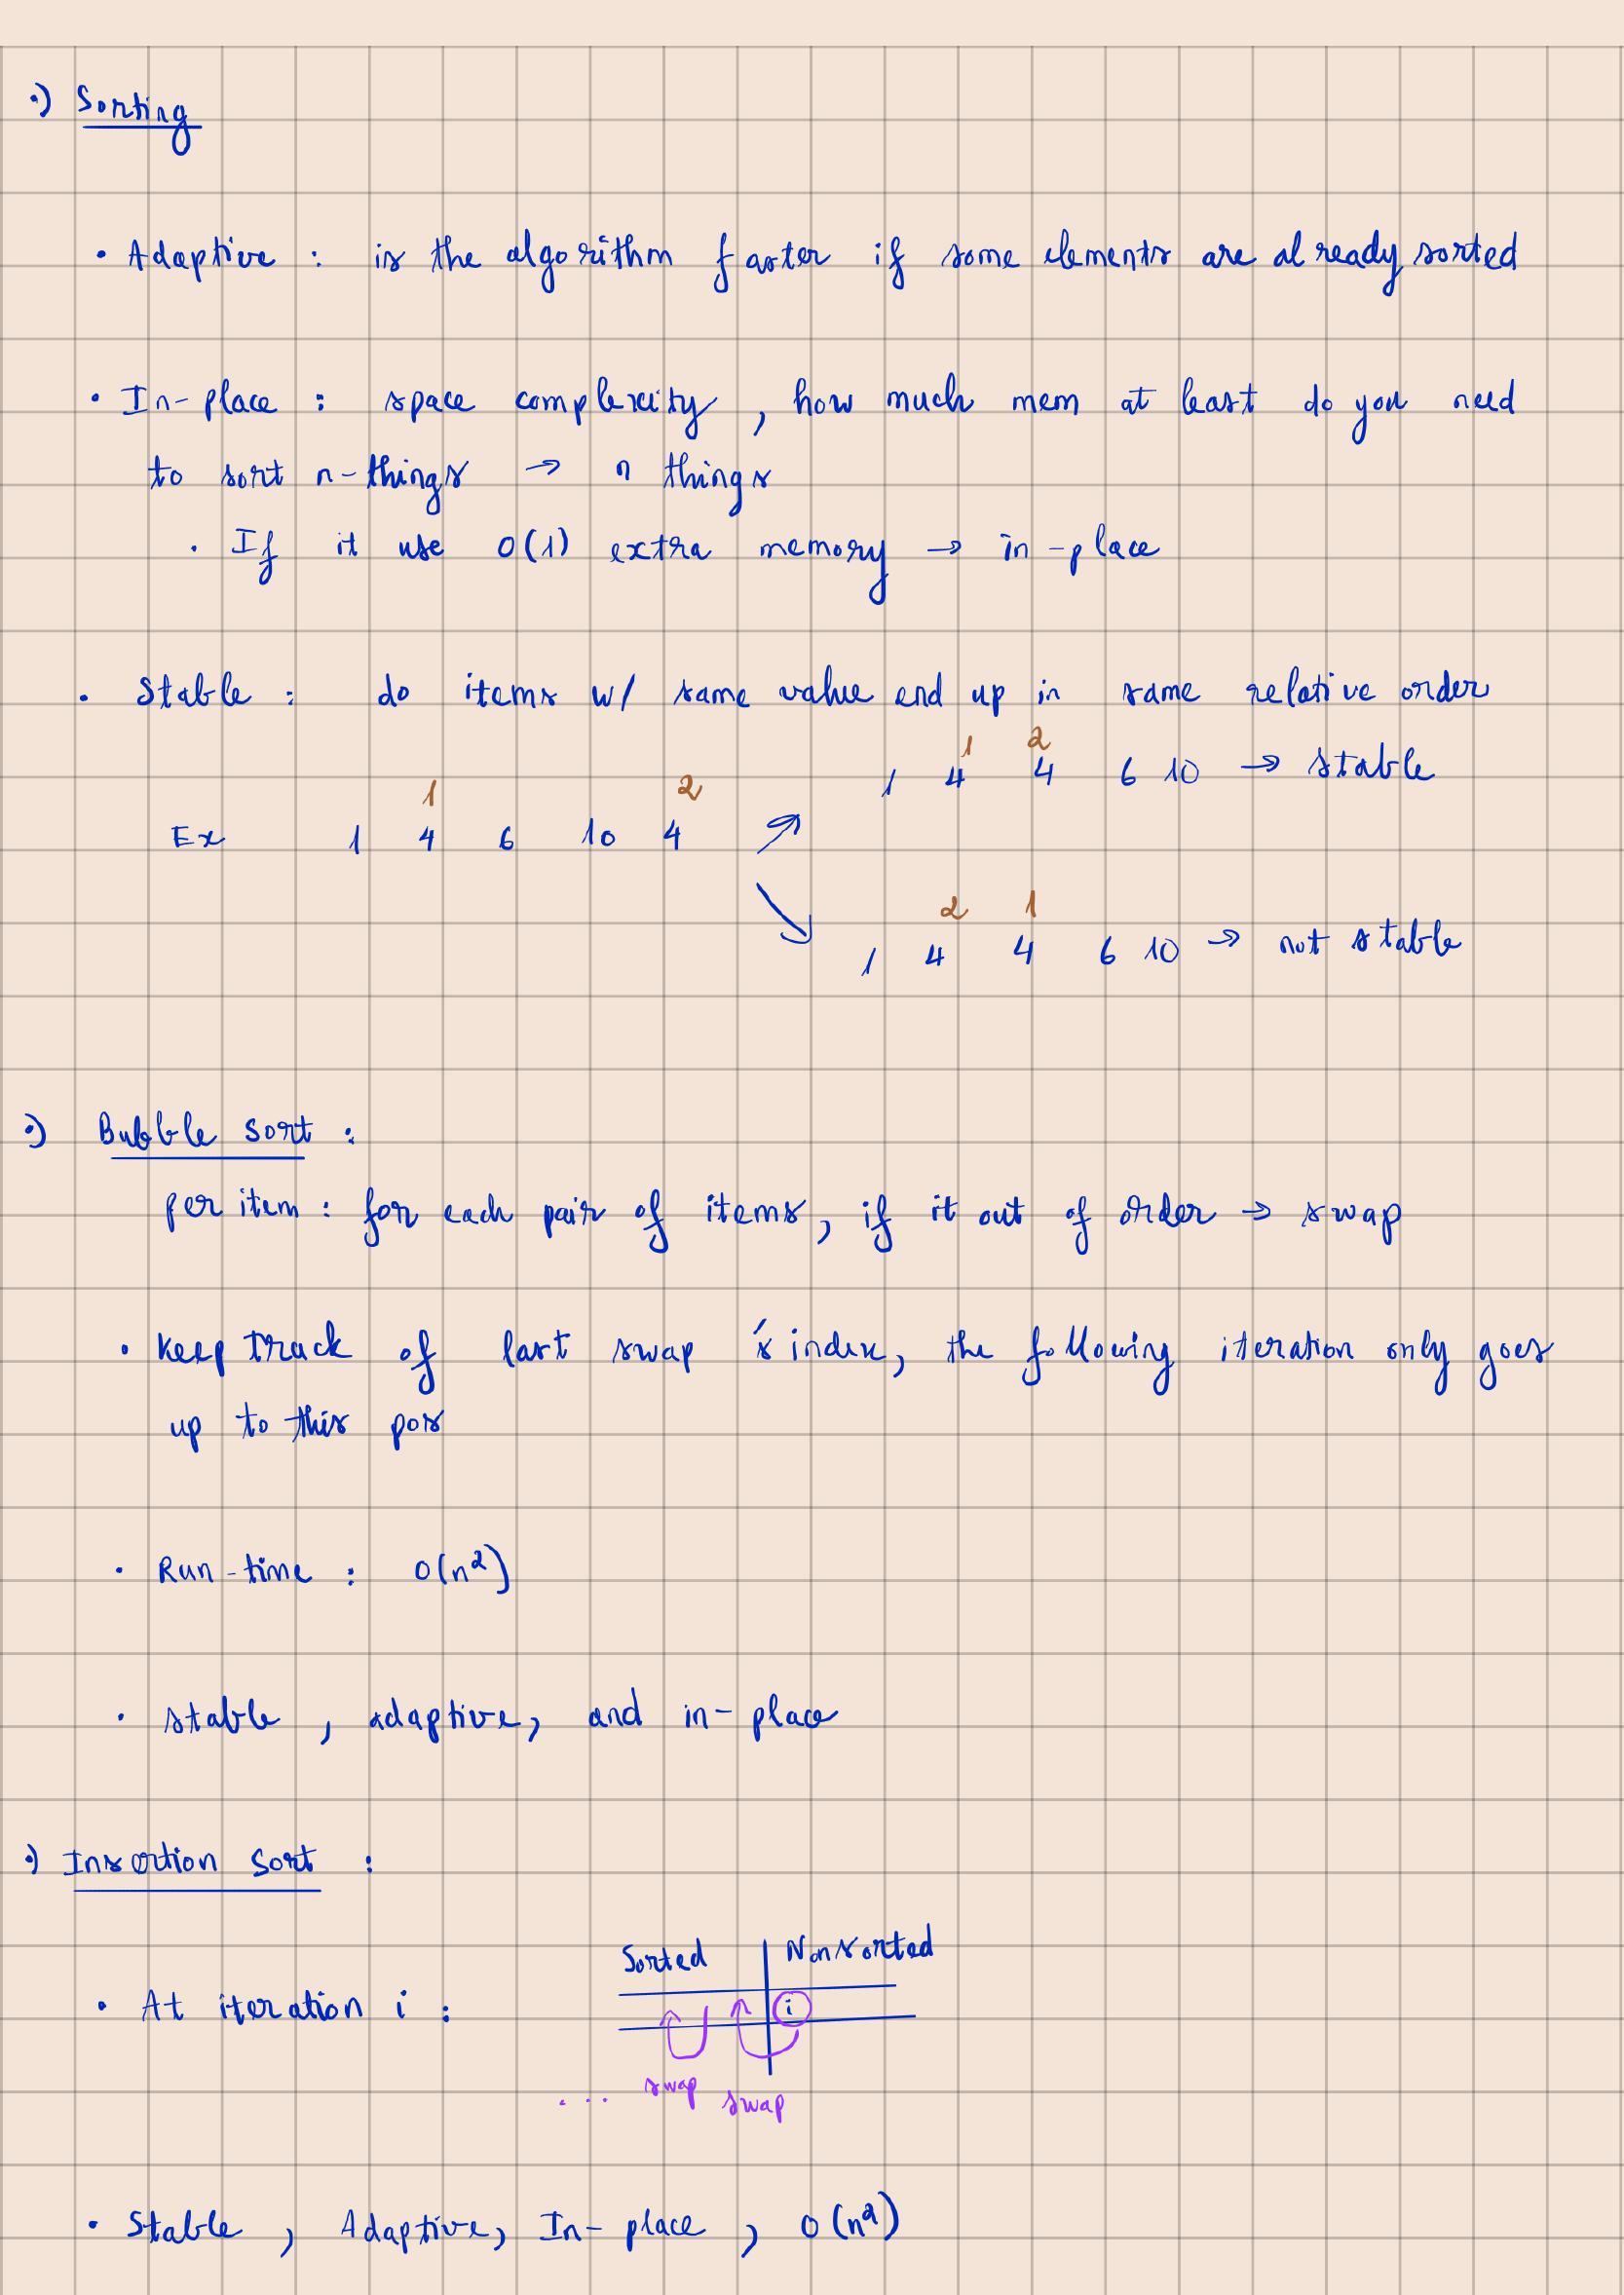 •) Sorting
• Adaptive : is the algorithm faster if some elements are already sorted
• In-place : space complexity, how much mem at least do you need
to sort n-things → n things
• If it use O(1) extra memory → in-place
• Stable : do items w/ same value end up in same relative order
1 2
1 4 4 6 10 → stable
1 2
Ex 1 4 6 10 4
2 1
1 4 4 6 10 → not stable
•) Bubble sort :
per item : for each pair of items, if it out of order → swap
• Keep track of last swap's index, the following iteration only goes
up to this pos
• Run-time : O(n²)
• stable, adaptive, and in-place
•) Insertion sort :
Sorted Non sorted
• At iteration i : i
... swap swap
• Stable, Adaptive, In-place, O(n²)